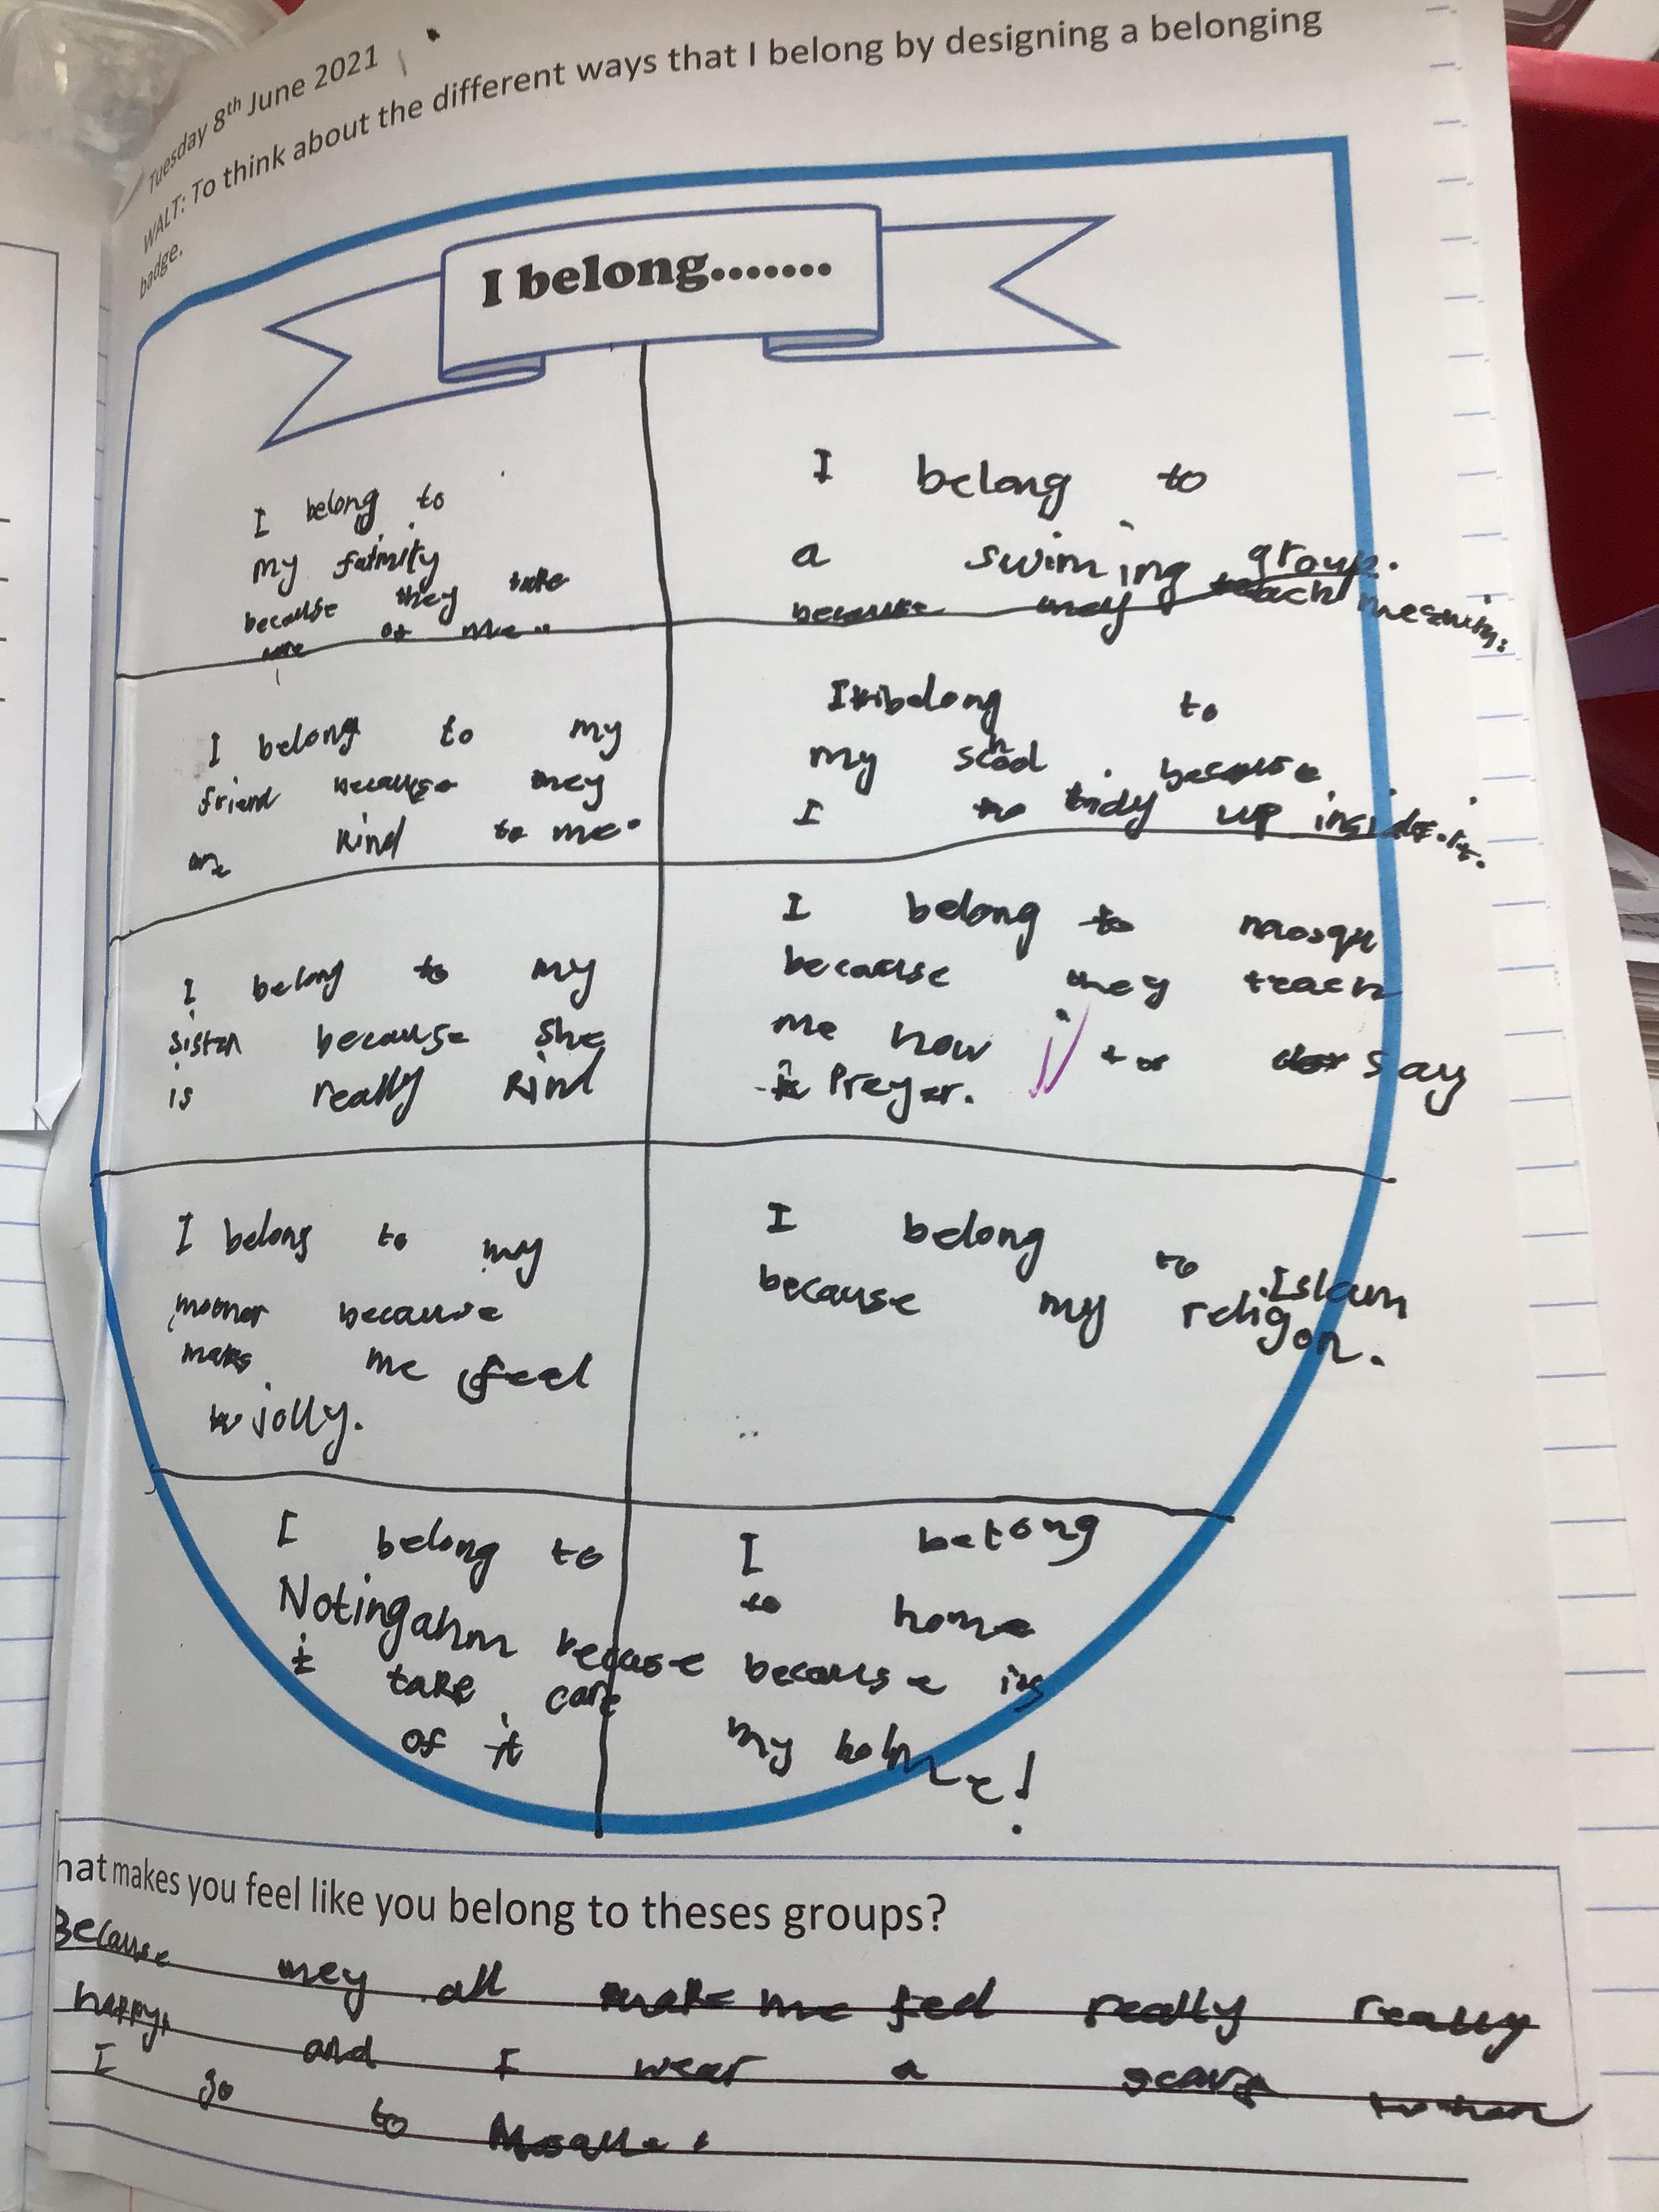 Tuesday 8th June 2021
WALT: To think about the different ways that I belong by designing a belonging
badge.
I belong.......
I belong to
my
because they take
care of me..
I belong to
a swiming group.
because they teach me swim.
I belong to my
friend because they
are kind to me.
I belong to
my school because
I tidy up inside it.
I belong to my
sister because she
is really kind
I belong to mosqu
because they teach
me how to say
Preyer.
I belong to my
mother because
maks me feel
jolly.
I belong to Islam
because my religon.
I belong to
Notingahm becase
i take care
of it
I belong
to home
because its
my
hat makes you feel like you belong to theses groups?
Because they all make me feel really really
happy, and I wear a scarf when
I go to Mosque.